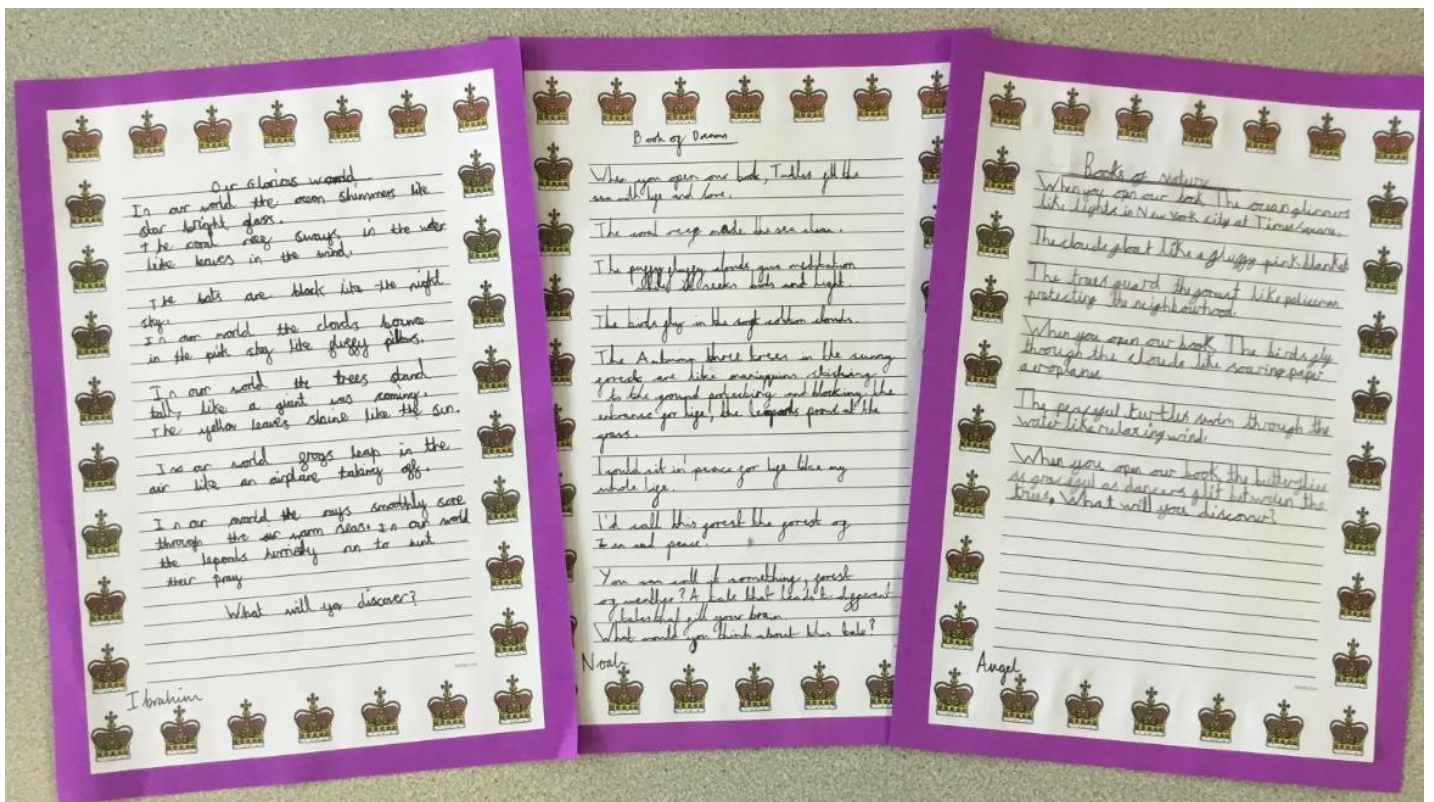 Our Glorius world
In our world the ocean shimmers like
star bright glass.
the coral reef sways in the water
like leaves in the wind.
The bats are black like the night
sky.
In our world the clouds bounce
in the pink sky like fluffy pillows.
In our world the trees stand
tall, like a giant was coming.
The yellow leaves shine like the sun.
In our world frogs leap in the
air like an airplane taking off.
In our world the rays smoothly sore
through the warm seas. In our world
the leponds run to hunt
their pray
What will you discover?
Ibrahim
Book of Dreams
When you open our book, Turtles fill the
sea with life and love.
The coral reef made the sea clean.
The puffy fluffy clouds give meditation
while it seeks bats and light.
The birds fly in the soft cotton clouds.
The Autumn trees in the sunny
forest are like sticking
to the ground protecting and blocking the
entrance for life, the leopards at the
grass.
I would sit in peace for life like my
whole life.
I'd call this forest the forest of
and peace.
You can call it something, forest
of weather? A tale that leads to different
tales that fill your brain.
What would you think about this tale?
Noah
Books of nature
When you open our book The ocean glimmers
like lights in New York city at Times Square.
The clouds float like a fluffy pink blanket
The trees guard the forest like policeman
protecting the neighbourhood.
When you open our book The birds fly
through the clouds like soaring paper
aeroplanes
The peaceful turtles swim through the
water like relaxing wind.
When you open our book the butterflies
as graceful as dancers flit between the
trees. What will you discover?
Angel